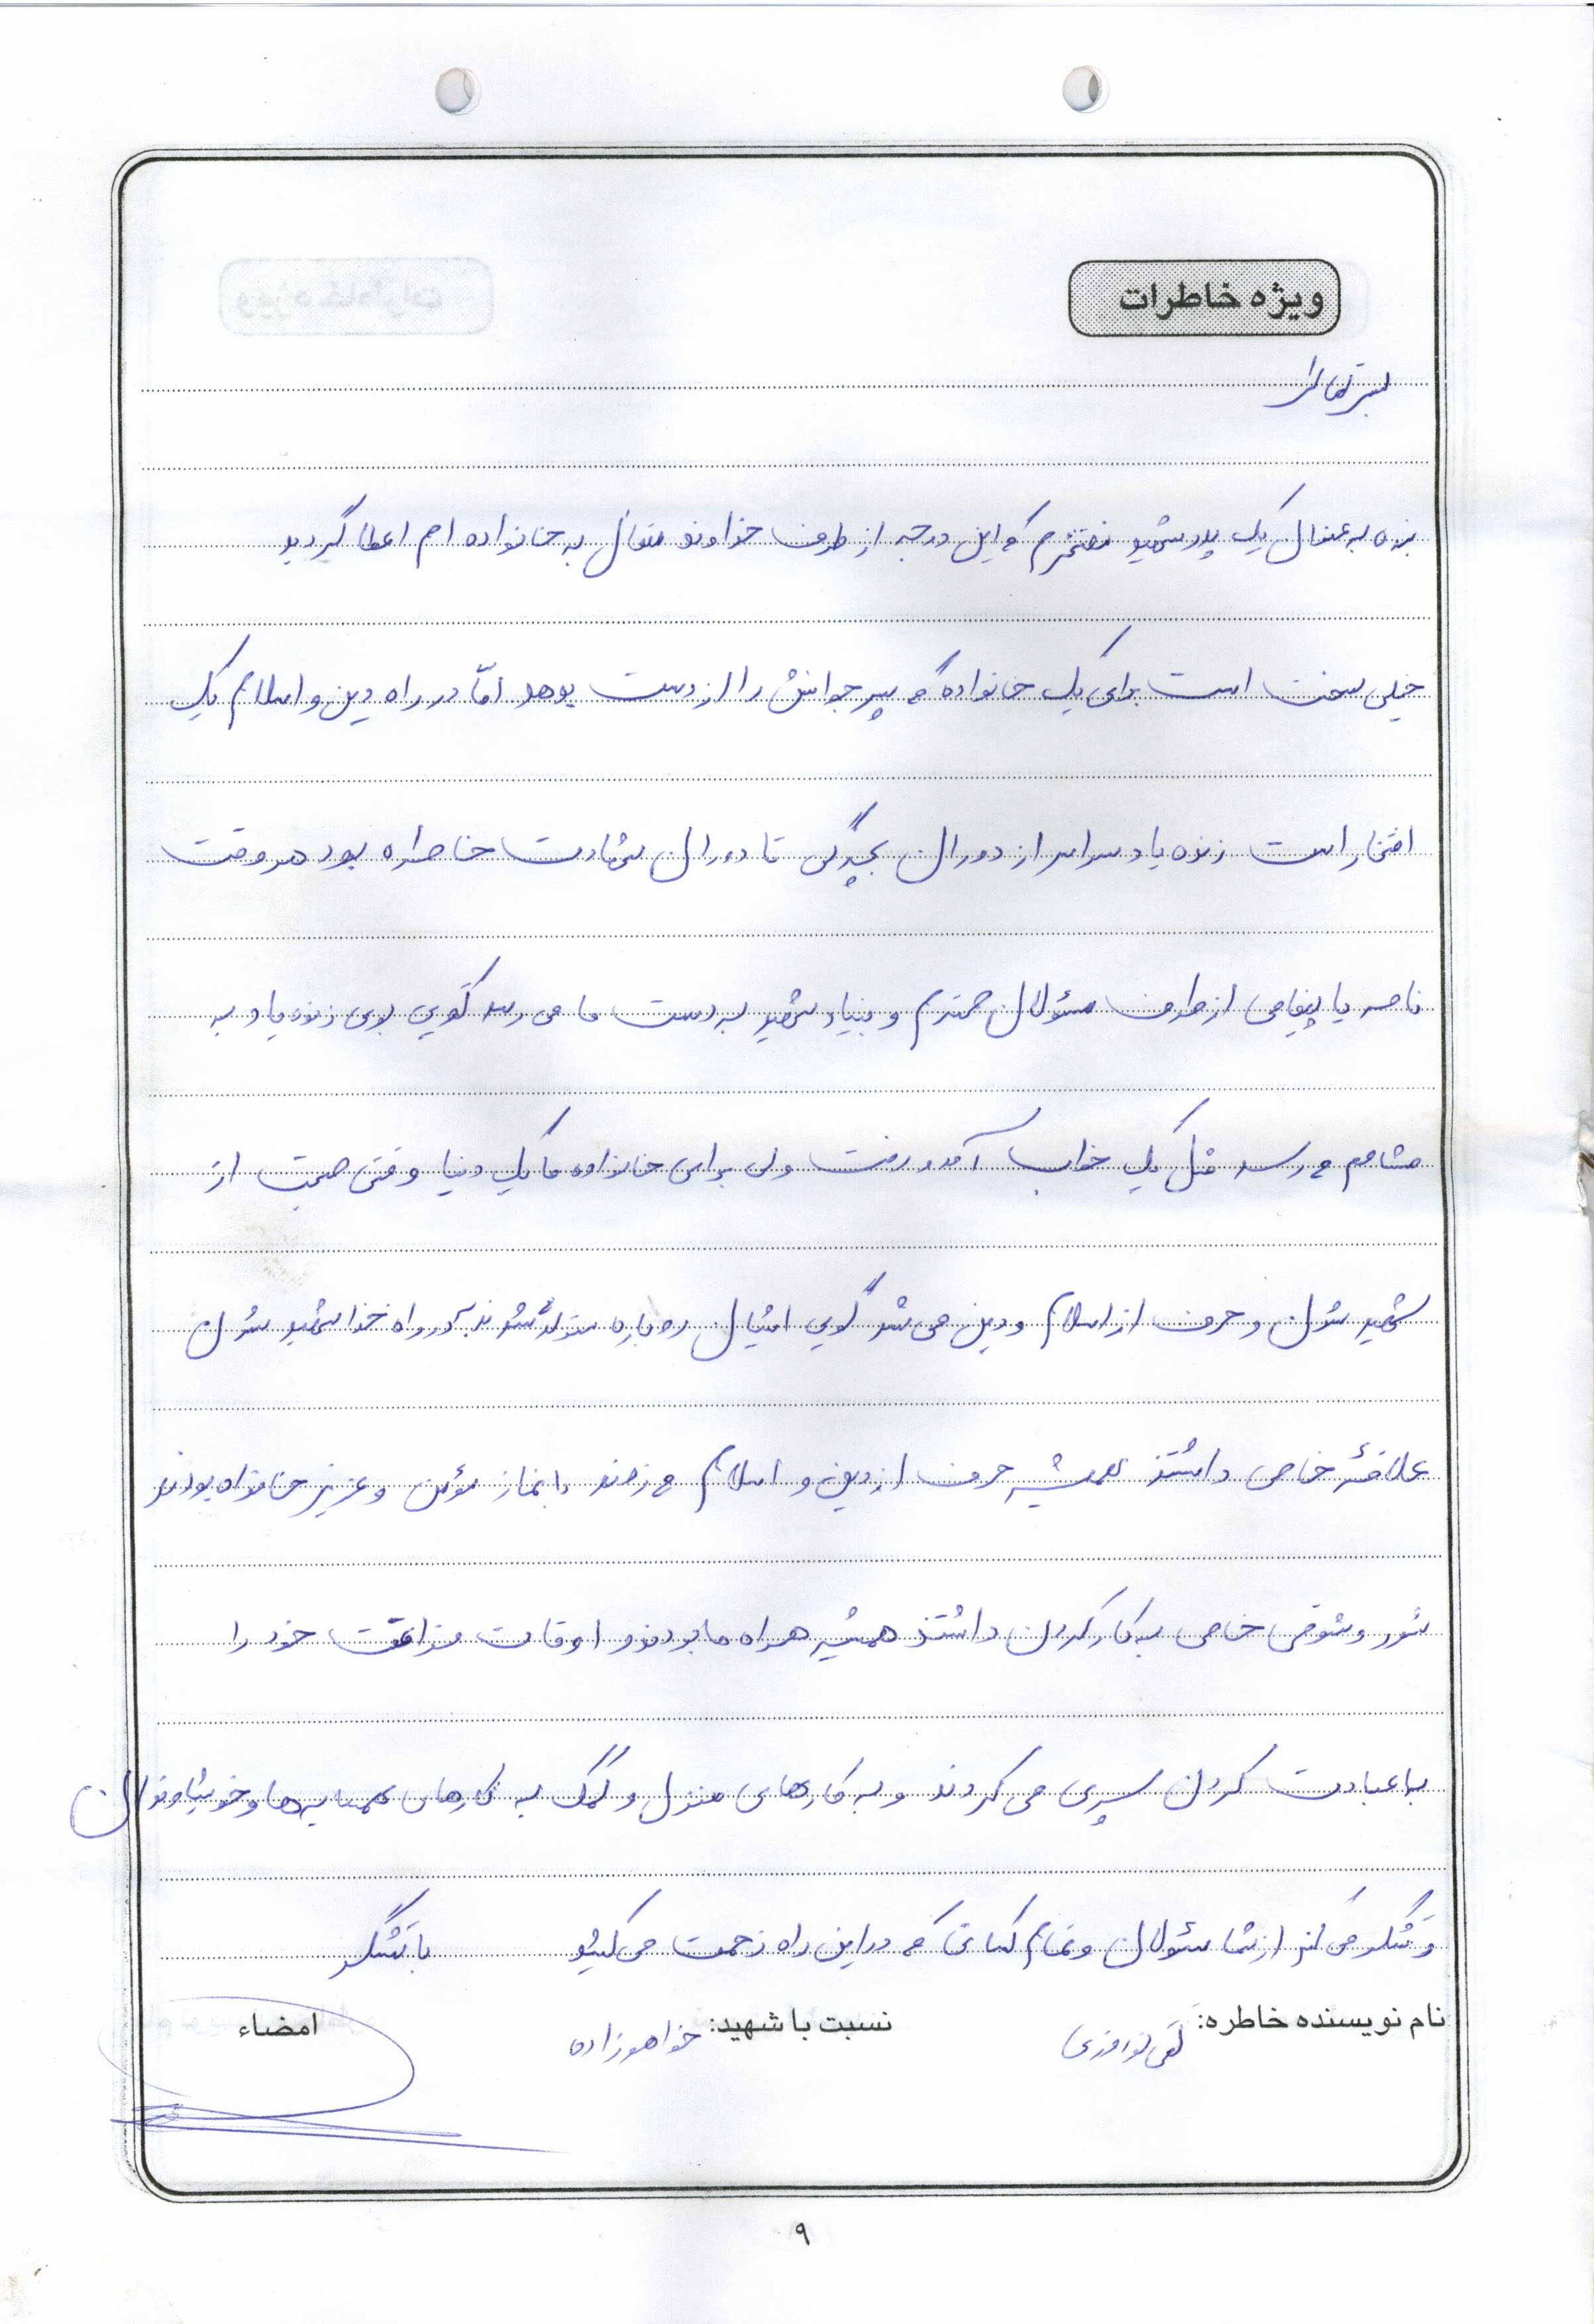 ویژه خاطرات
بسمه تعالی
بنده به عنوان یک پدر شهید مفتخرم که این درجه از طرف خداوند متعال به خانواده ام اعطا گردید
خیلی سخت است برای یک خانواده که پسر جوانش را از دست بدهد امّا در راه دین و اسلام یک
افتخار است زنده یاد سراسر از دوران بچگی تا دوران شهادت خاطره بود هر وقت
نامه یا پیغامی از طرف مسئولان محترم و بنیاد شهید به دست ما می رسد گویی بوی زنده یاد به
مشامم می رسد مثل یک خواب آمد و رفت ولی برای خانواده ما یک دنیا وقتی صحبت از
شهید شدن و حرف از اسلام و دین می شد گویی ایشان دوباره متولد شدند به در راه خدا شهید شدن
علاقه خاصی داشتند همیشه حرف از دین و اسلام می زدند با نماز مؤمن و عزیز خانواده بودند
شور و شوقی خاصی به کار کردن داشتند همیشه همراه ما بودند و اوقات فراغت خود را
با عبادت کردن سپری می کردند و به کارهای منزل و کمک به کارهای همسایه ها و خویشاوندان
و تشکر می کنم از شما مسئولان و تمام کسانی که در این راه زحمت می کشید با تشکر
نام نویسنده خاطره: نسبت با شهید: خواهرزاده امضاء
۹